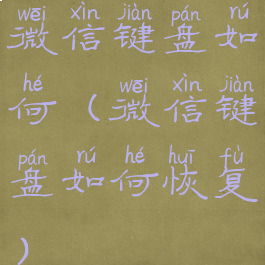 wēi xìn jiàn pán rú
微信键盘如
hé wēi xìn jiàn
何（微信键
pán rú hé huī fù
盘如何恢复
）